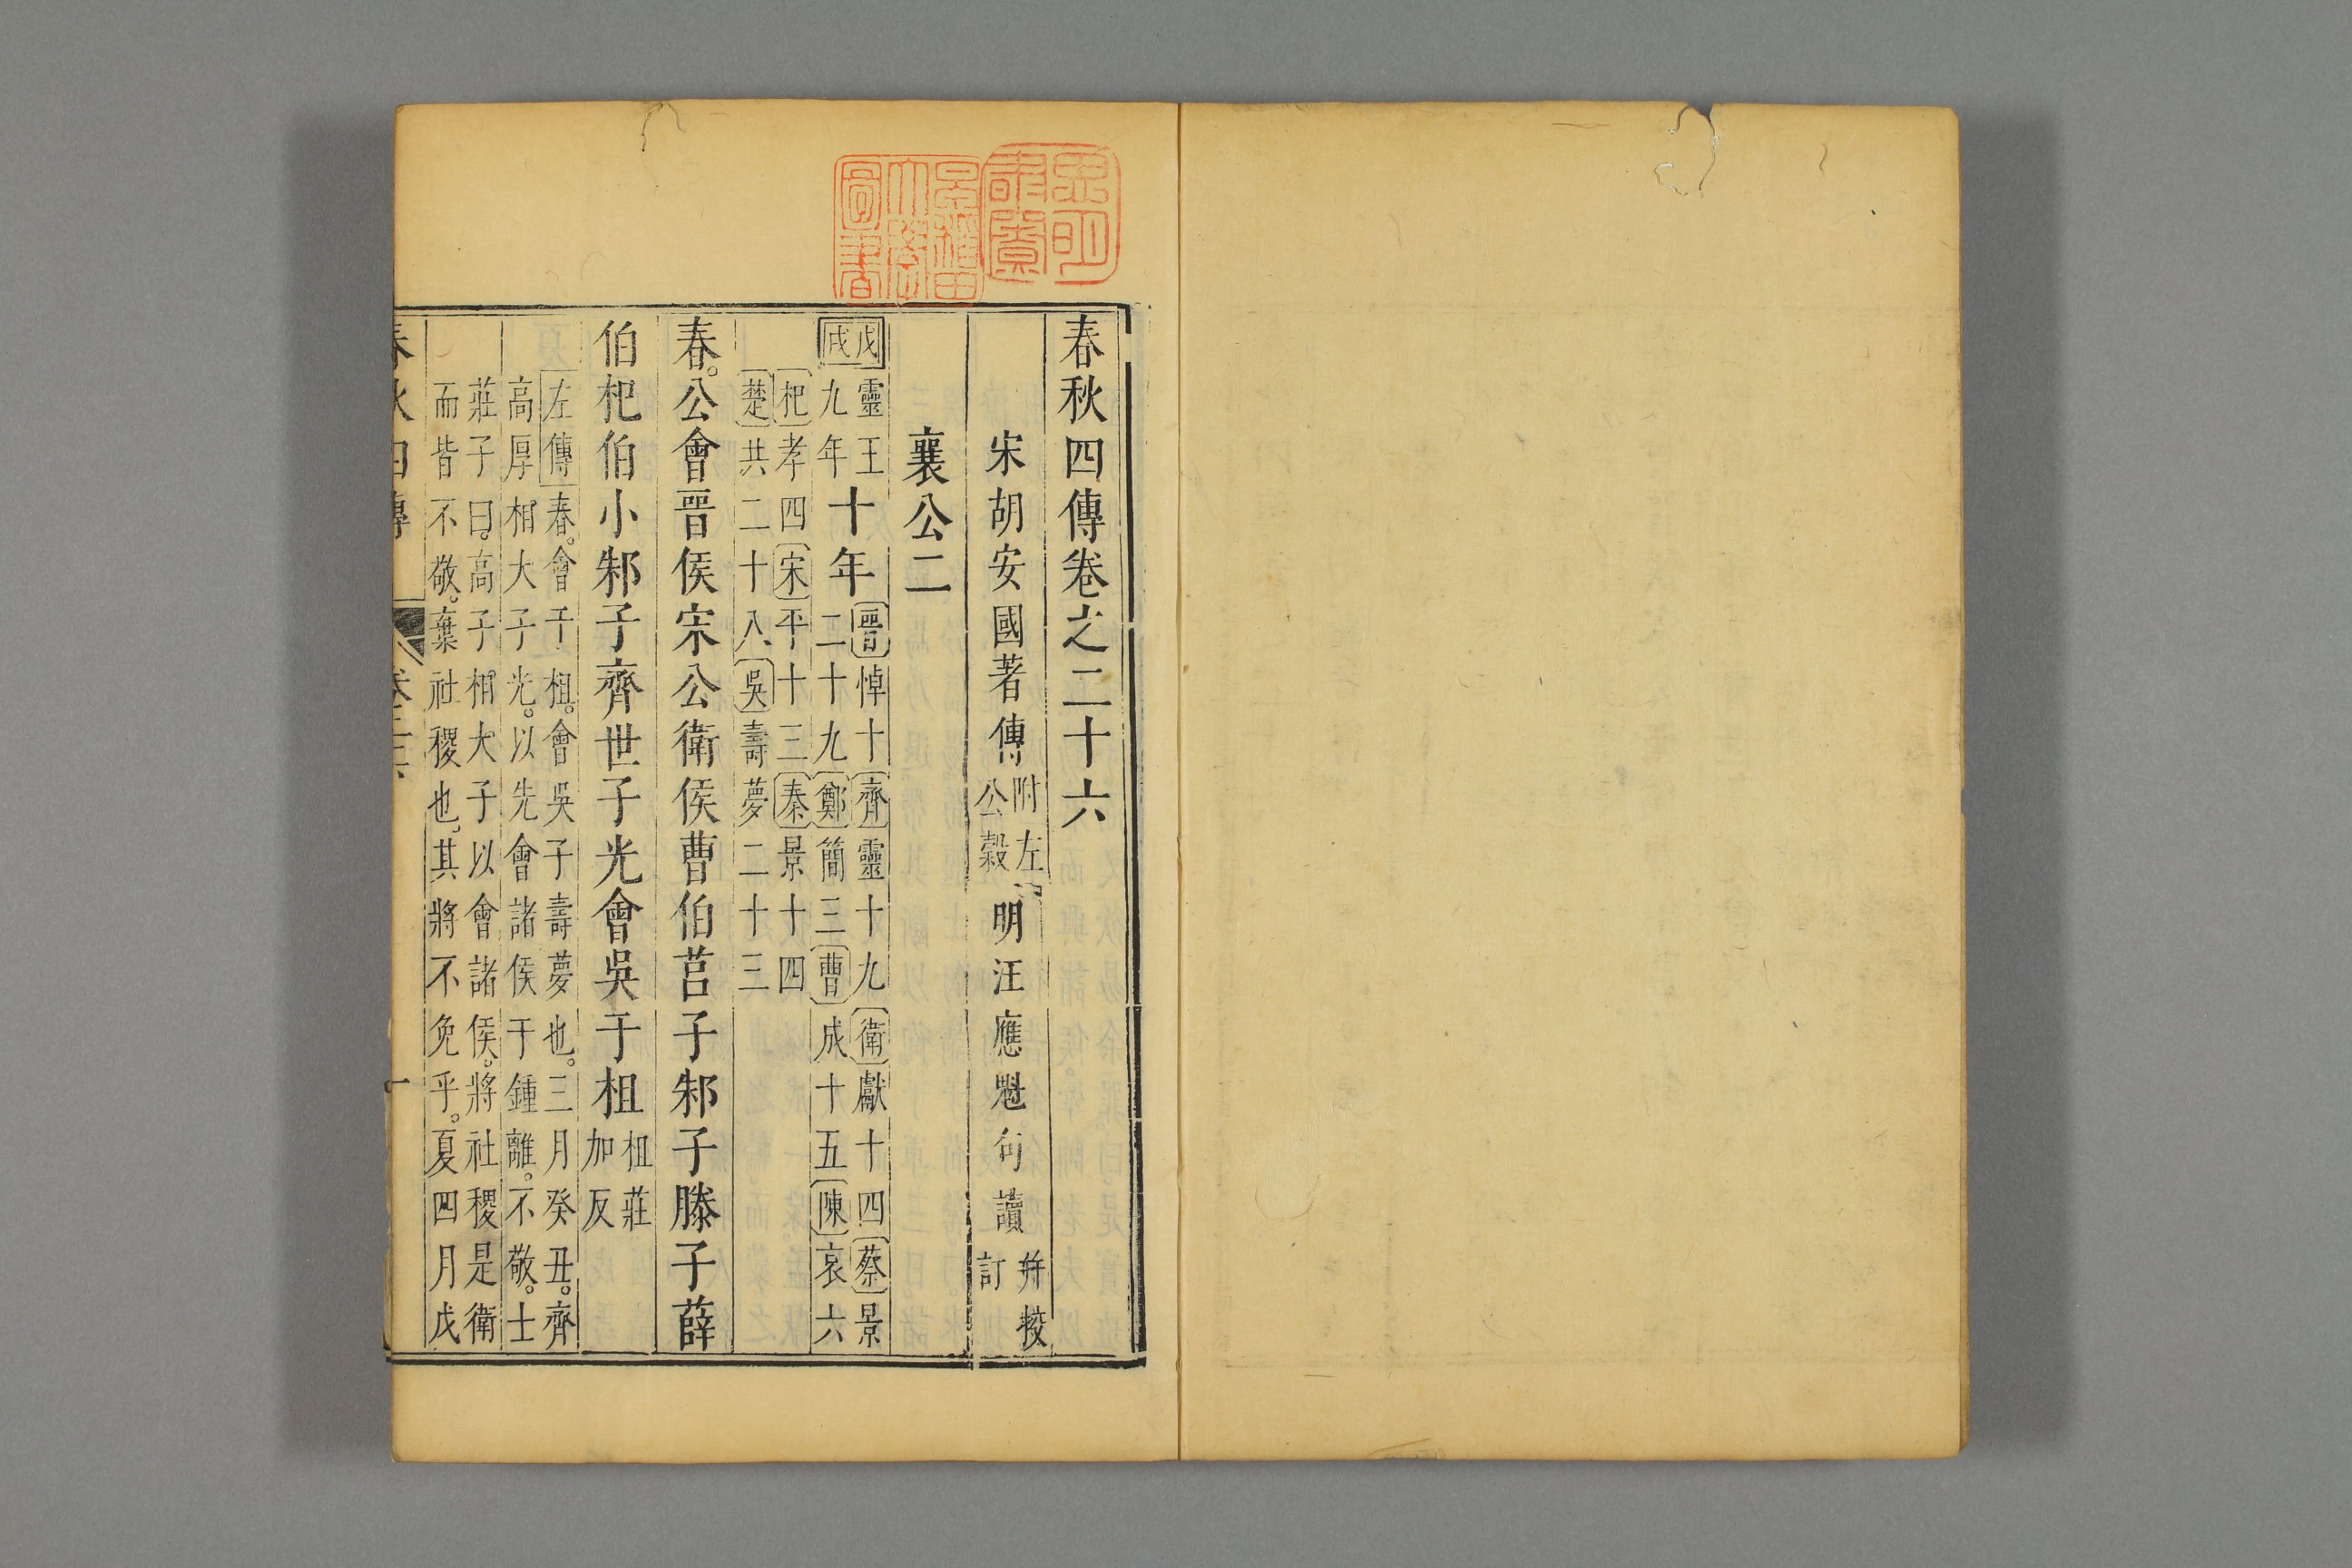 春秋四傳卷之二十六
宋胡安國著傳附左公穀明汪應魁句讀并挍訂
襄公二
戊戌靈王九年十年晉悼十齊靈十九衛獻十四蔡景
二十九鄭簡三曹成十五陳哀六
杞孝四宋平十三秦景十四
楚共二十八吳壽夢二十三
春。公會晉侯宋公衛侯曹伯莒子邾子滕子薛
伯杞伯小邾子齊世子光會吳于柤柤莊加反
左傳春。會于柤。會吳子壽夢也。三月癸丑。齊
高厚相大子光。以先會諸侯于鍾離。不敬。士
莊子曰。高子相大子以會諸侯。將社稷是衛
而皆不敬。棄社稷也。其將不免乎。夏四月戊
春秋四傳 卷二十六 一
早稻田大學圖書